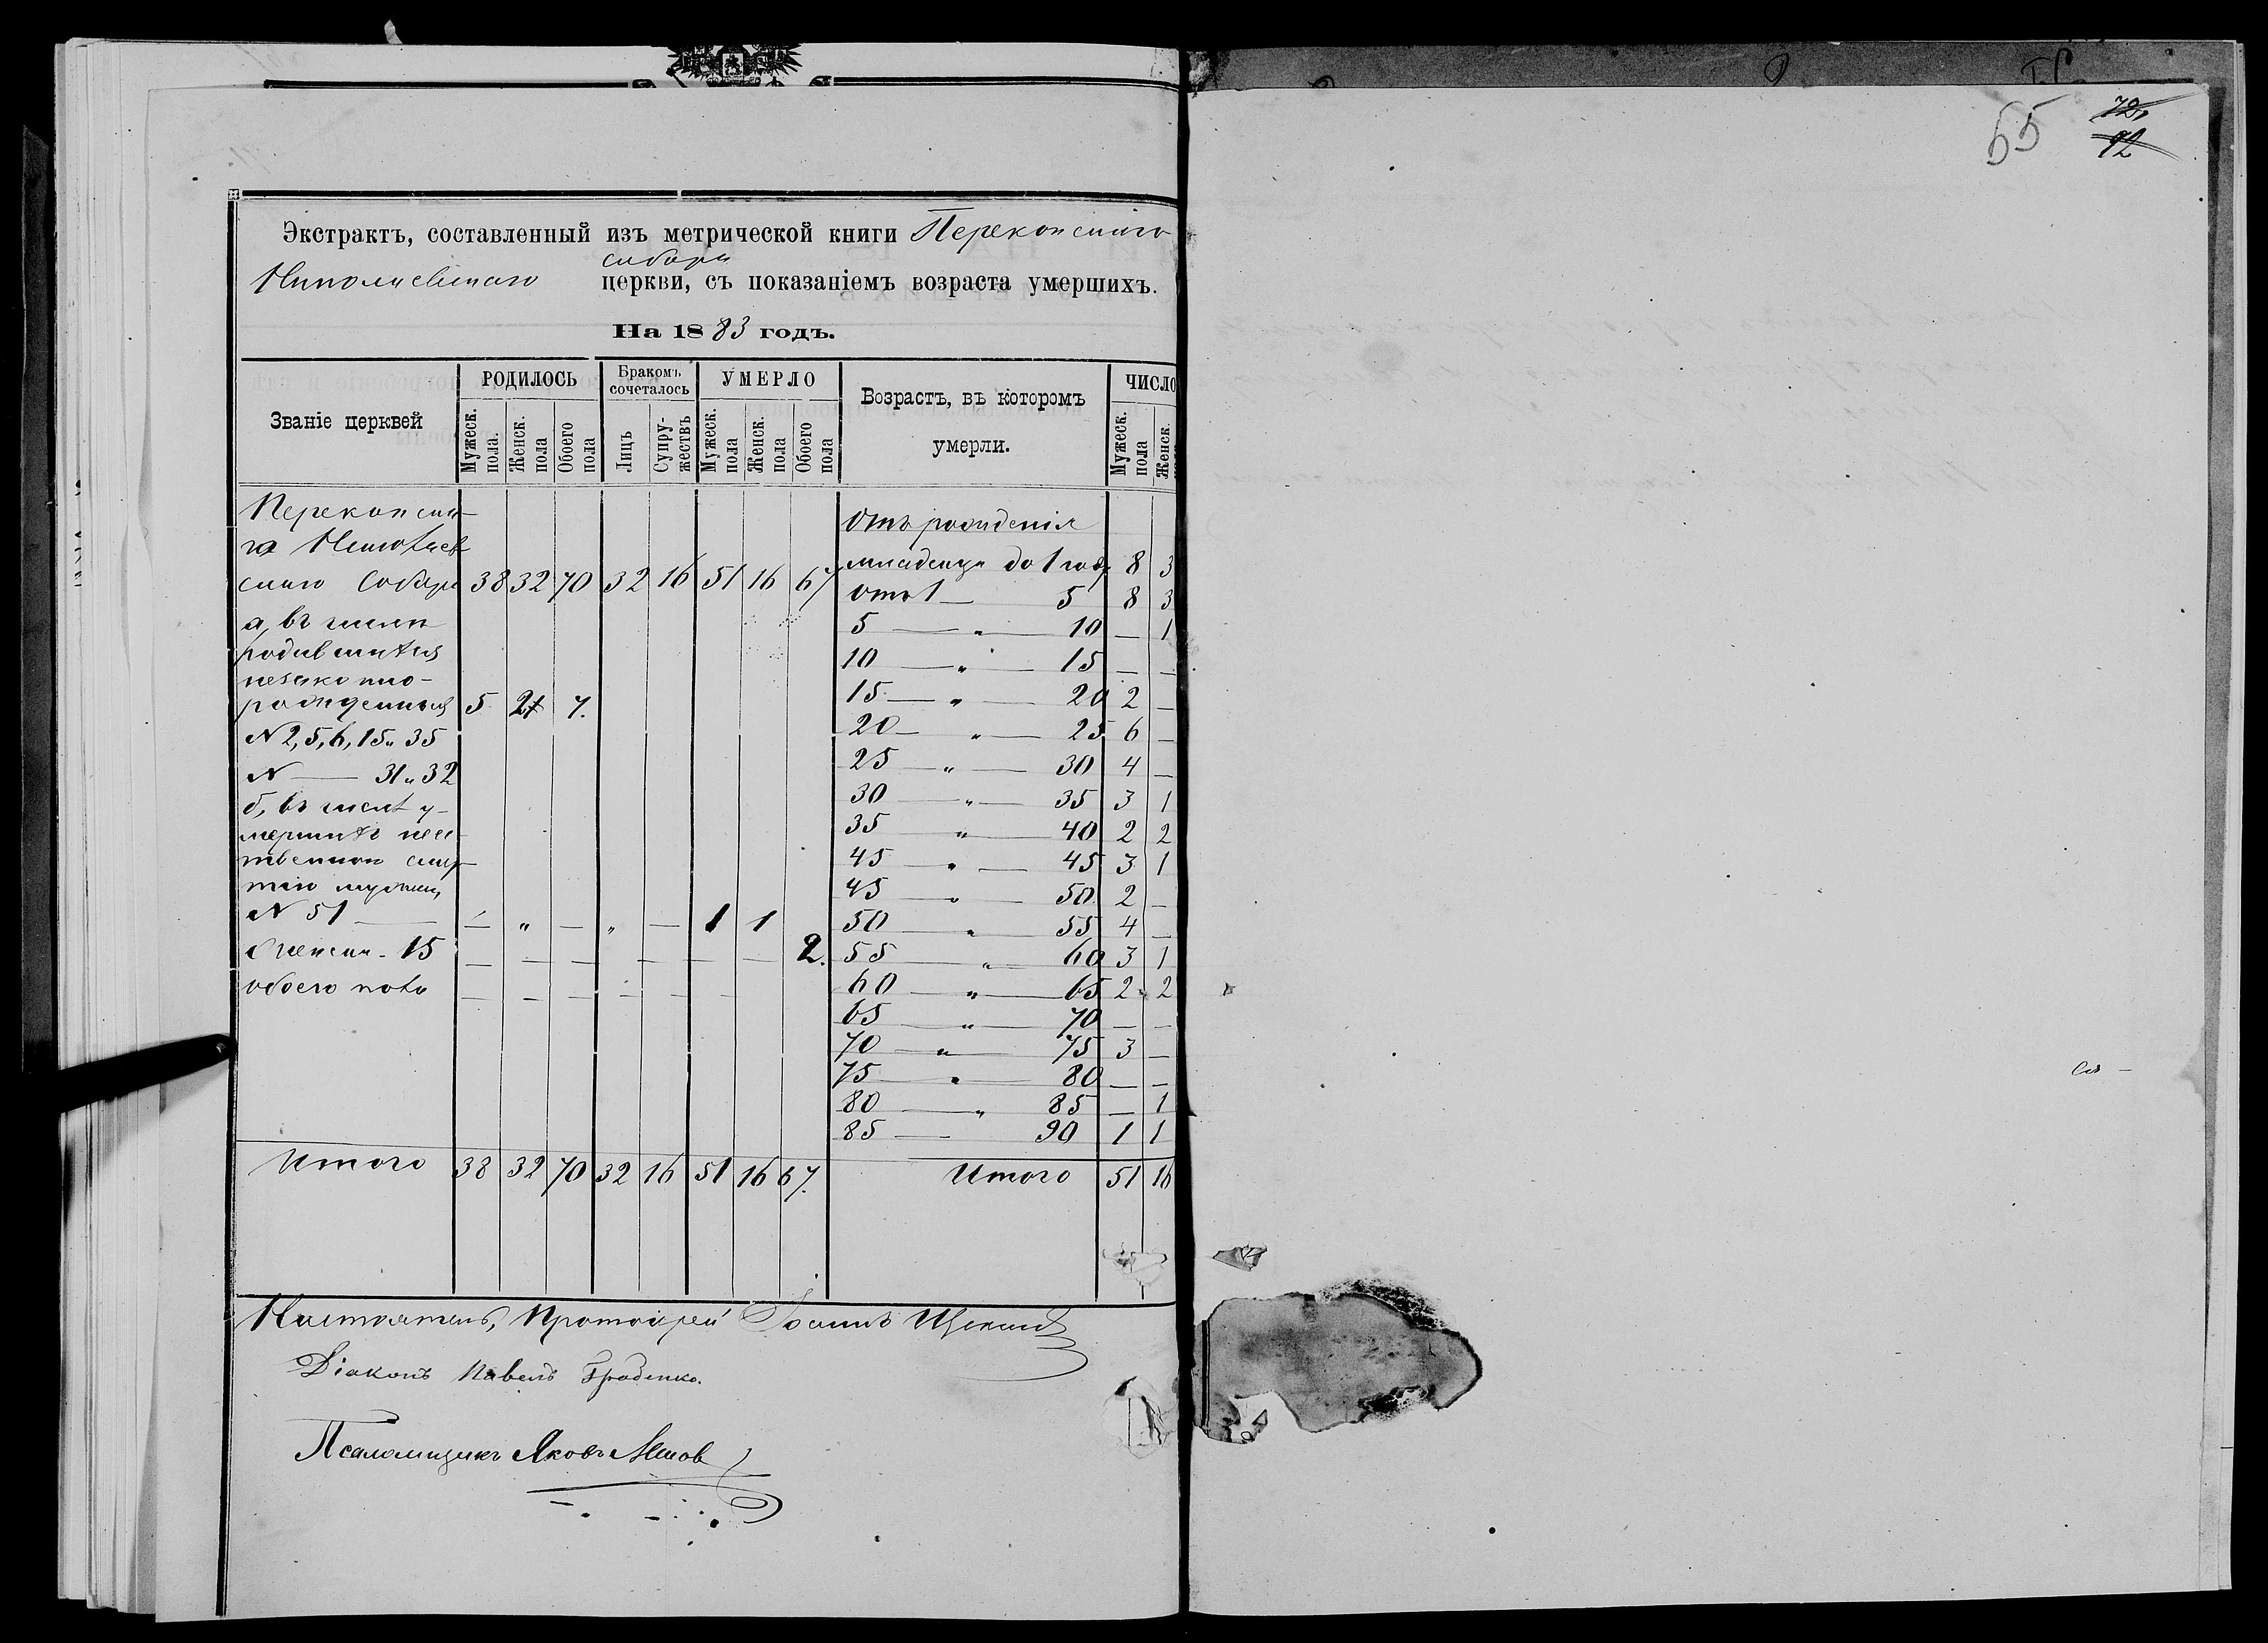 Экстрактъ, составленный изъ метрической книги Перекопскаго
Николаевскаго собора церкви, съ показаніемъ возраста умершихъ.
На 1883 годъ.
Званіе церквей
РОДИЛОСЬ
Мужеск. пола.
Женск. пола
Обоего пола
Бракомъ сочеталось
Лицъ
Супружествъ
УМЕРЛО
Мужеск. пола
Женск. пола
Обоего пола
Возрастъ, въ которомъ умерли.
ЧИСЛО
Мужеск. пола
Женск.
Перекопска-
го Николаев
скаго Собора 38 32 70 32 16 51 16 67
а, въ числѣ
родившихся
незаконно-
рожденныхъ 5 2 7.
N 2, 5, 6, 15 „ 35
N — 31 „ 32
б, въ числѣ у-
мершихъ неес-
твенною смер-
тію мужчинъ
N 51 — — „ — „ — 1 1
Женщин. 15 — — — — — — — 2.
обоего пола — — — — — — —
Отъ рожденія
младенца до 1 года 8 3
Отъ 1 — 5 8 3
5 — „ — 10 — 1
10 — „ — 15 — —
15 — „ — 20 2 —
20 — „ — 25 6 —
25 — „ — 30 4 —
30 — „ — 35 3 1
35 „ — 40 2 2
45 — „ — 45 3 1
45 — „ — 50 2 —
50 — „ — 55 4 —
55 — „ — 60 3 1
60 — „ — 65 2 2
65 — „ — 70 — —
70 — „ — 75 3 —
75 — „ — 80 — —
80 — „ 85 — 1
85 — 90 1 1
Итого 38 32 70 32 16 51 16 67.
Итого 51 16
Настоятель, Протоіерей Іоаннъ
Діаконъ Павелъ
Псаломщикъ Яковъ
55
72,
92